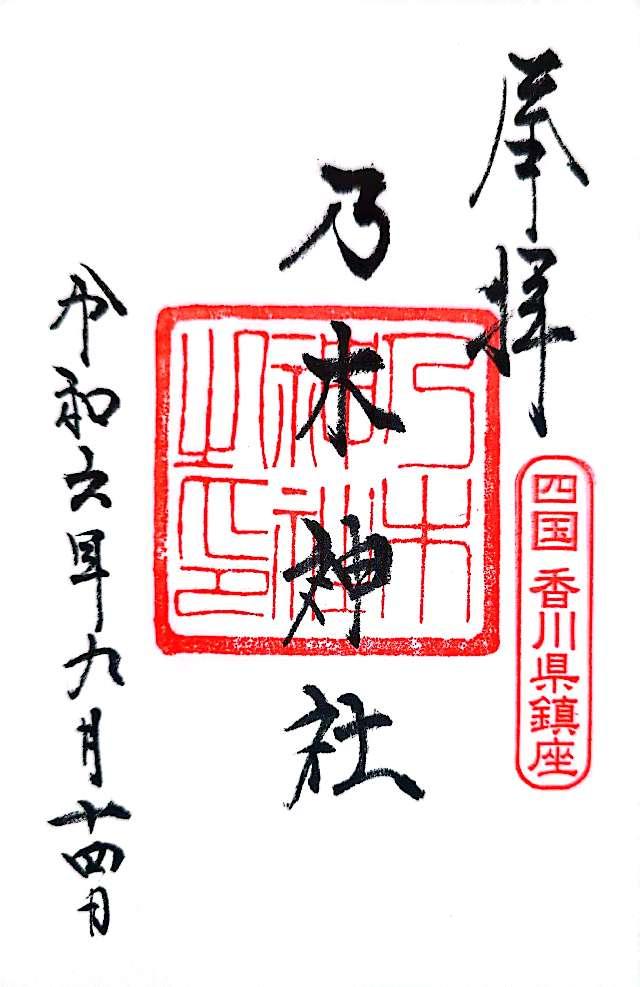 奉拝
四国 香川県鎮座
乃木神社
乃木神社之印
令和六年九月十四日